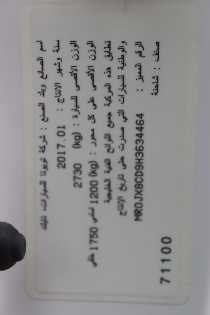 اسم الصانع وبلد الصنع : شركة تويوتا للسيارات، تايلاند
سنة وشهر الانتاج : 2017. 01
الوزن الأقصى للسيارة : (kg) 2730
الوزن الأقصى على كل محور : (kg) 1200 أمامي 1750 خلفي
تطابق هذه المركبة جميع اللوائح الفنية الخليجية
والوطنية للسيارات التي صدرت حتى تاريخ الإنتاج
الرقم المميز : MR0JX8CD9H3634464
صنف : شاحنة
71100